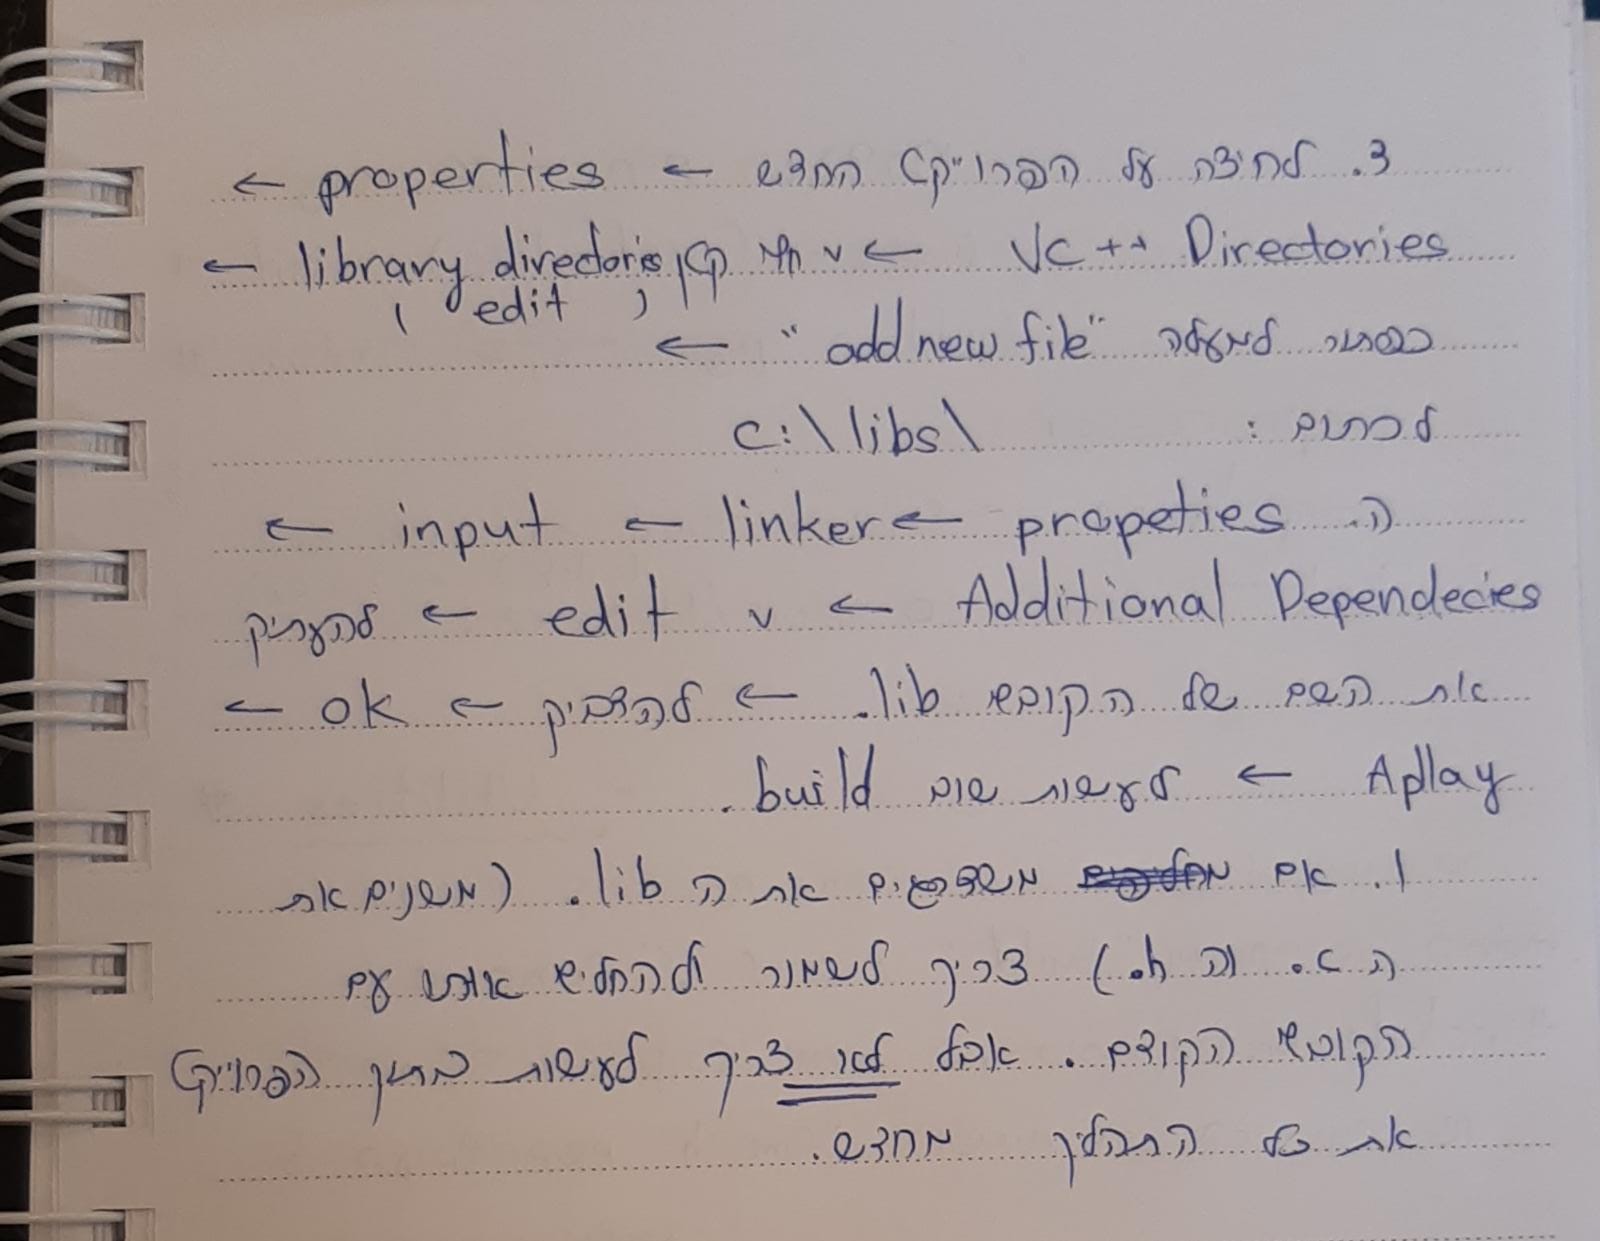 ד. לחיצה על הפרוייקט החדש ← properties ←
VC++ Directories ← v חץ קטן library directoris ←
( edit )
כפתור למעלה "add new file" ←
לכתוב : c:\libs\
ה. propeties ← linker ← input ←
Additional Dependecies ← v edit ← להעתיק
את השם של הקובץ lib. ← להדביק ← ok ←
Apllay ← לעשות שוב build.
ו. אם משדרגים את ה lib. (משנים את
ה .c וה .h) צריך לשמור ולהחליף אותו עם
הקובץ הקודם. אבל לא צריך לעשות בתוך הפרוייקט
את כל התהליך מחדש.